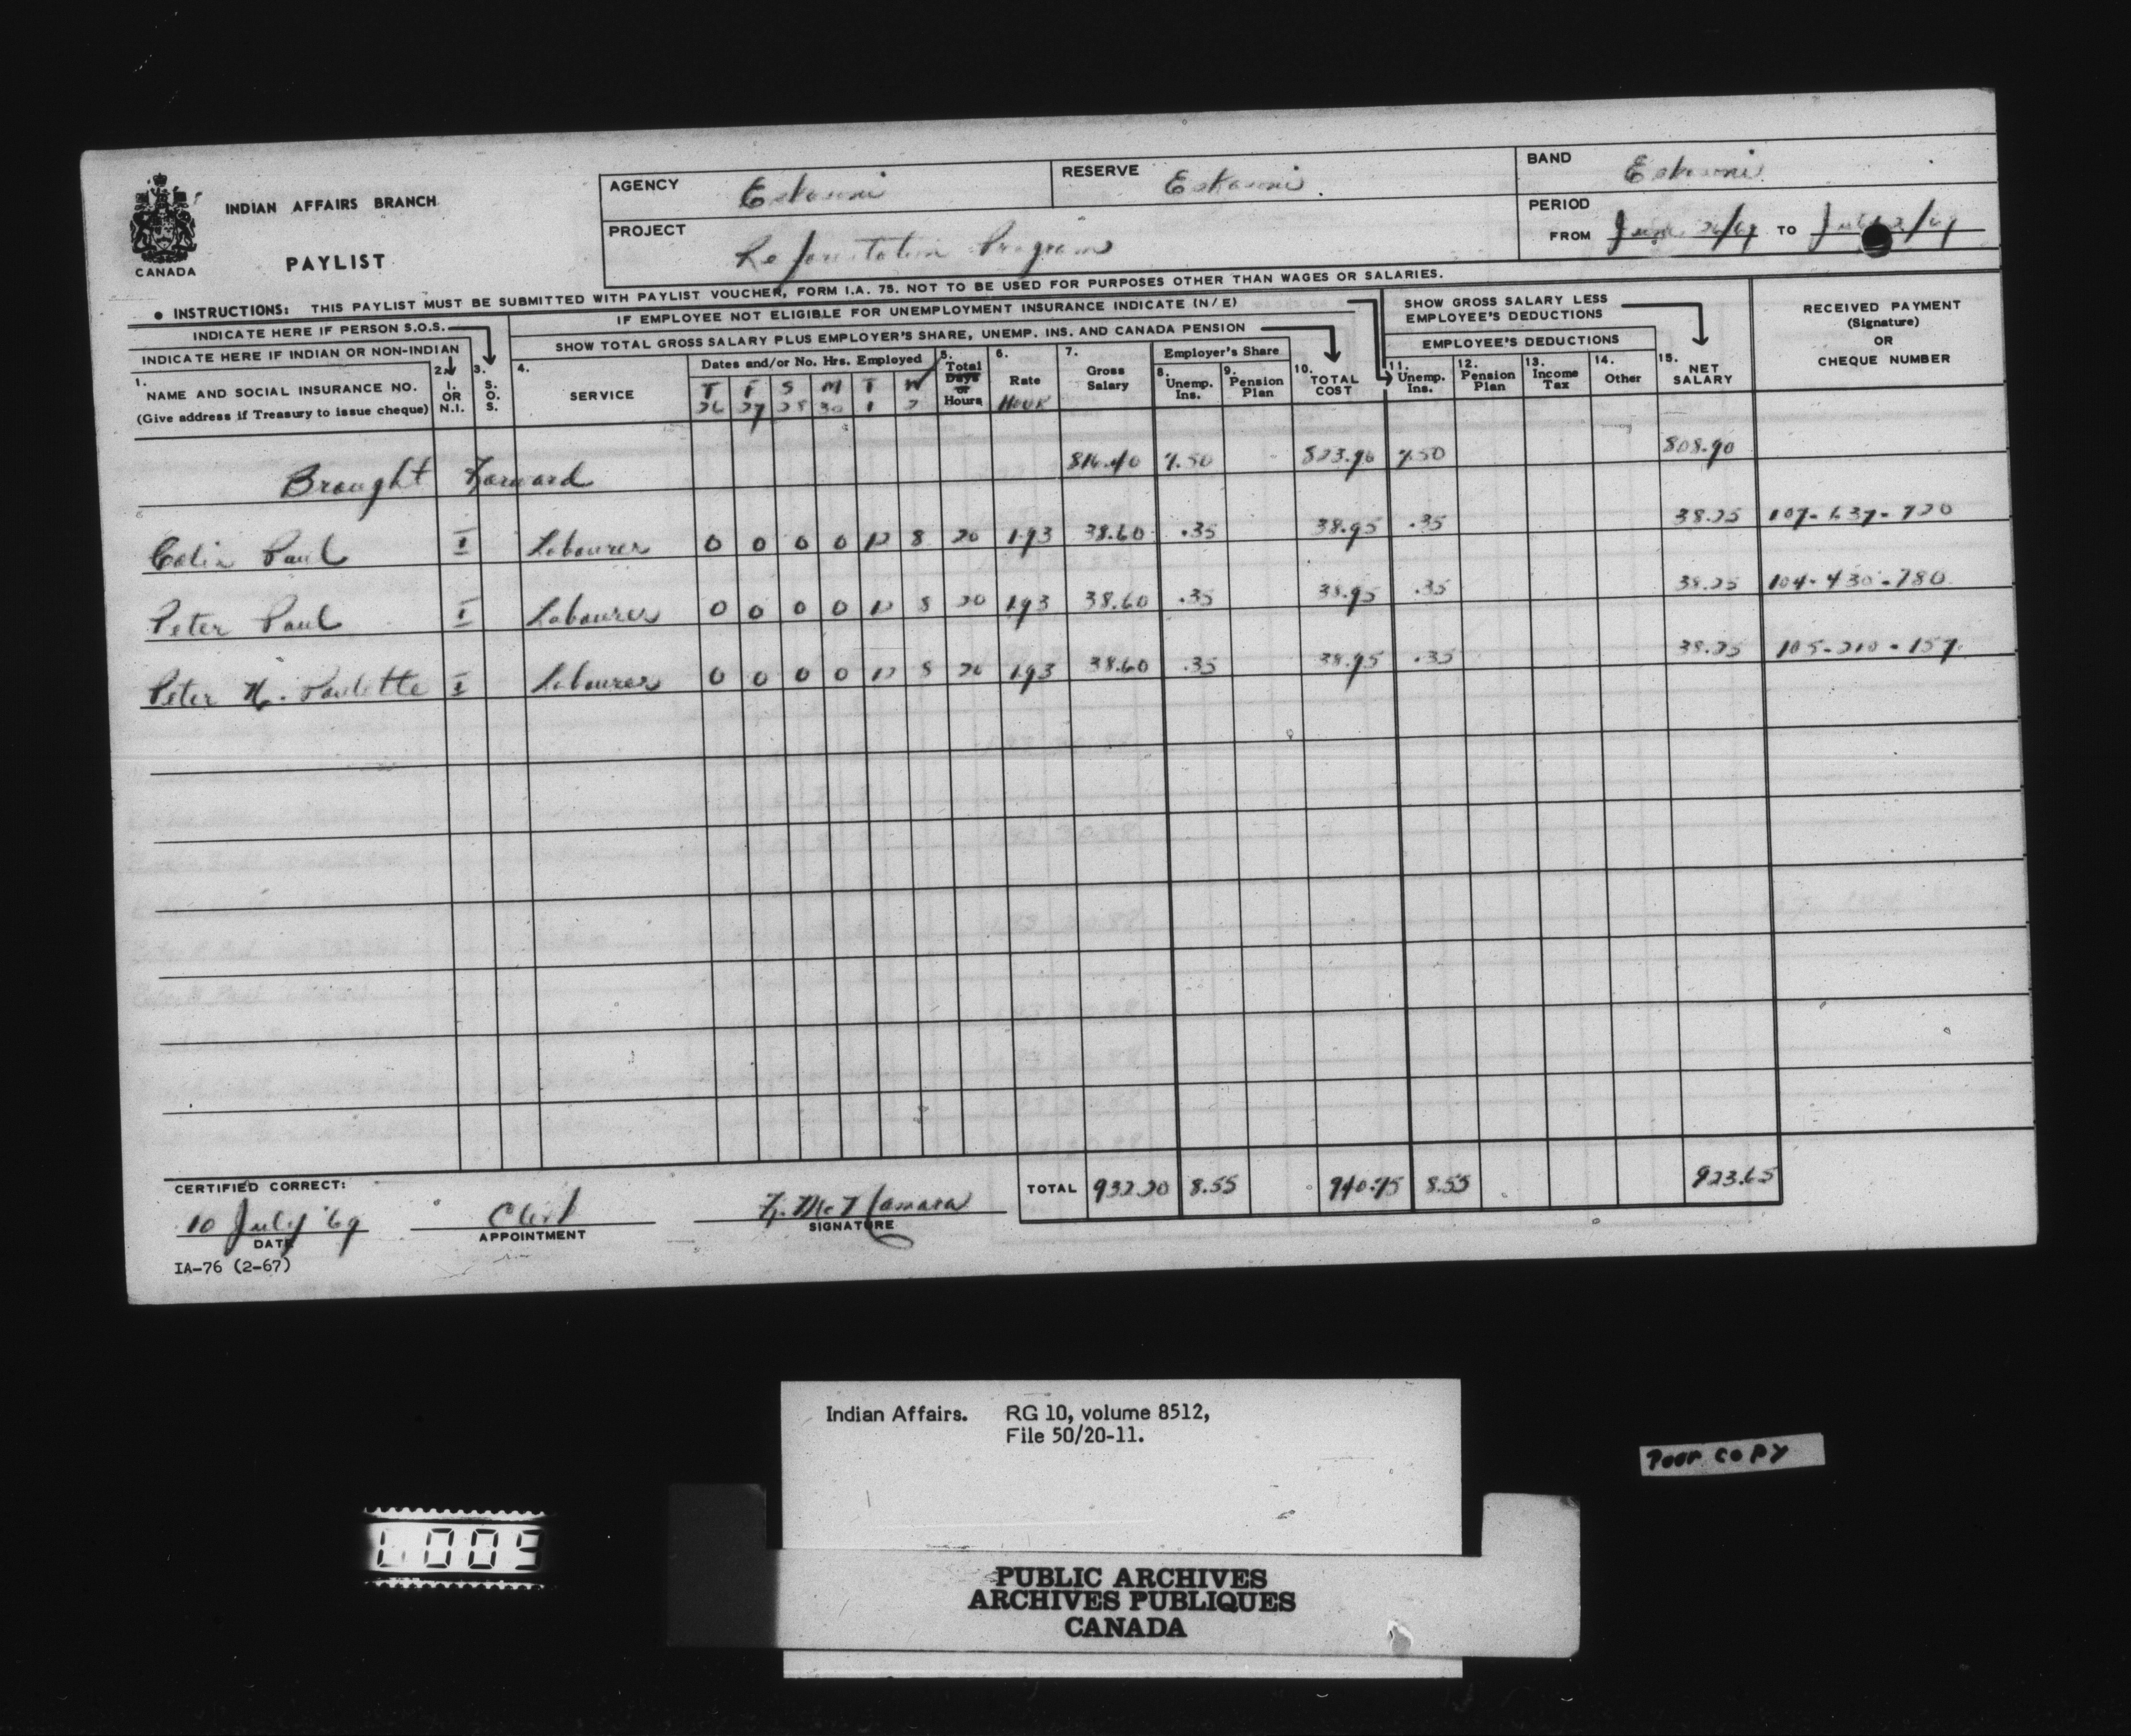 INDIAN AFFAIRS BRANCH
PAYLIST
CANADA
AGENCY Eskasoni
RESERVE Eskasoni
BAND Eskasoni
PROJECT Reforestation Program
PERIOD
FROM June 26/69 TO July 2/69
• INSTRUCTIONS: THIS PAYLIST MUST BE SUBMITTED WITH PAYLIST VOUCHER, FORM I.A. 75. NOT TO BE USED FOR PURPOSES OTHER THAN WAGES OR SALARIES.
INDICATE HERE IF PERSON S.O.S.
IF EMPLOYEE NOT ELIGIBLE FOR UNEMPLOYMENT INSURANCE INDICATE (N/E)
SHOW GROSS SALARY LESS EMPLOYEE'S DEDUCTIONS
INDICATE HERE IF INDIAN OR NON-INDIAN
SHOW TOTAL GROSS SALARY PLUS EMPLOYER'S SHARE, UNEMP. INS. AND CANADA PENSION
EMPLOYEE'S DEDUCTIONS
1. NAME AND SOCIAL INSURANCE NO. (Give address if Treasury to issue cheque)
2. I. OR N.I.
3. S. O. S.
4. SERVICE
Dates and/or No. Hrs. Employed
T F S M T W
26 27 28 30 1 2
5. Total Days or Hours
6. Rate HOUR
7. Gross Salary
Employer's Share
8. Unemp. Ins.
9. Pension Plan
10. TOTAL COST
11. Unemp. Ins.
12. Pension Plan
13. Income Tax
14. Other
15. NET SALARY
RECEIVED PAYMENT (Signature) OR CHEQUE NUMBER
Brought Forward 816.40 7.50 823.90 7.50 808.90
Colin Paul I Labourer 0 0 0 0 12 8 20 1.93 38.60 .35 38.95 .35 38.25 107-637-720
Peter Paul I Labourer 0 0 0 0 12 8 20 1.93 38.60 .35 38.95 .35 38.25 104-430-780
Peter N. Paulette I Labourer 0 0 0 0 12 8 20 1.93 38.60 .35 38.95 .35 38.25 105-210-157
TOTAL 932.20 8.55 940.75 8.55 923.65
CERTIFIED CORRECT:
10 July '69 Clerk F. McNamara
DATE APPOINTMENT SIGNATURE
IA-76 (2-67)
Indian Affairs. RG 10, volume 8512,
File 50/20-11.
Poor copy
PUBLIC ARCHIVES
ARCHIVES PUBLIQUES
CANADA